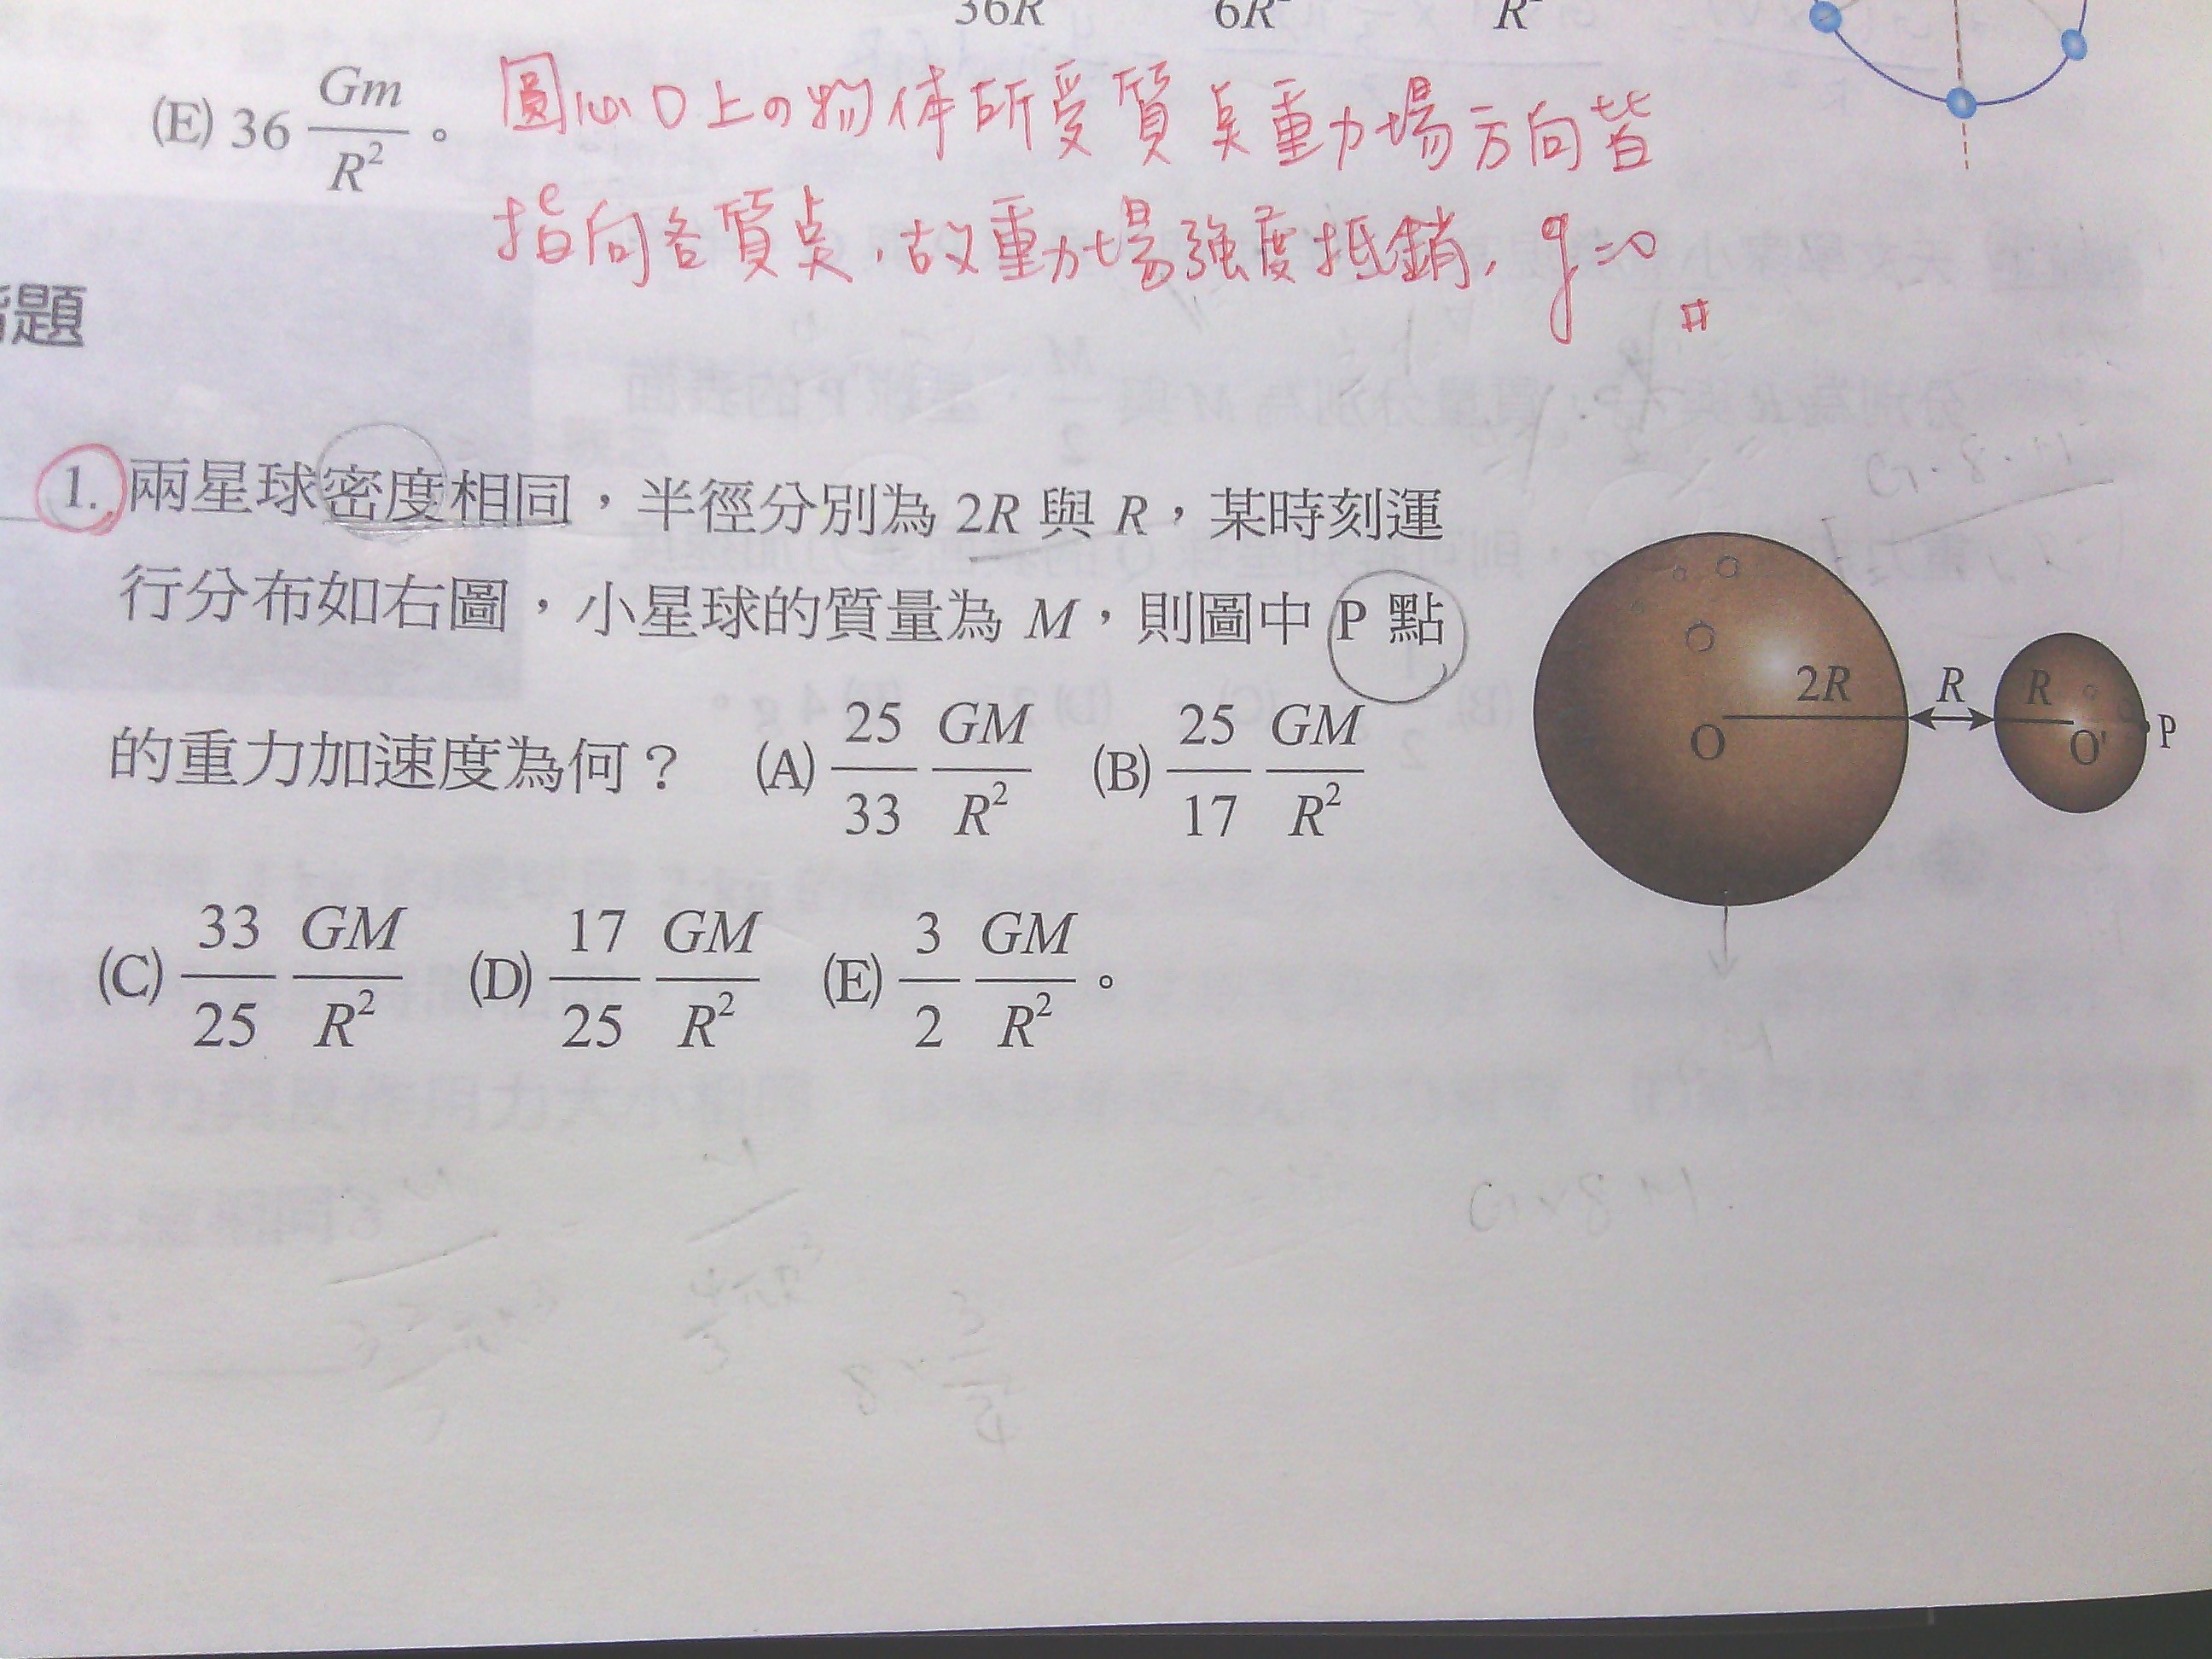 36R 6R R
(E) 36 Gm/R² 。
圓心O上の物体所受質点重力場方向皆
指向各質点,故重力場強度抵銷, g=0 #
題
1. 兩星球密度相同,半徑分別為 2R 與 R,某時刻運
行分布如右圖,小星球的質量為 M,則圖中 P 點
的重力加速度為何? (A) 25/33 GM/R² (B) 25/17 GM/R²
(C) 33/25 GM/R² (D) 17/25 GM/R² (E) 3/2 GM/R² 。
2R R R
O O' P